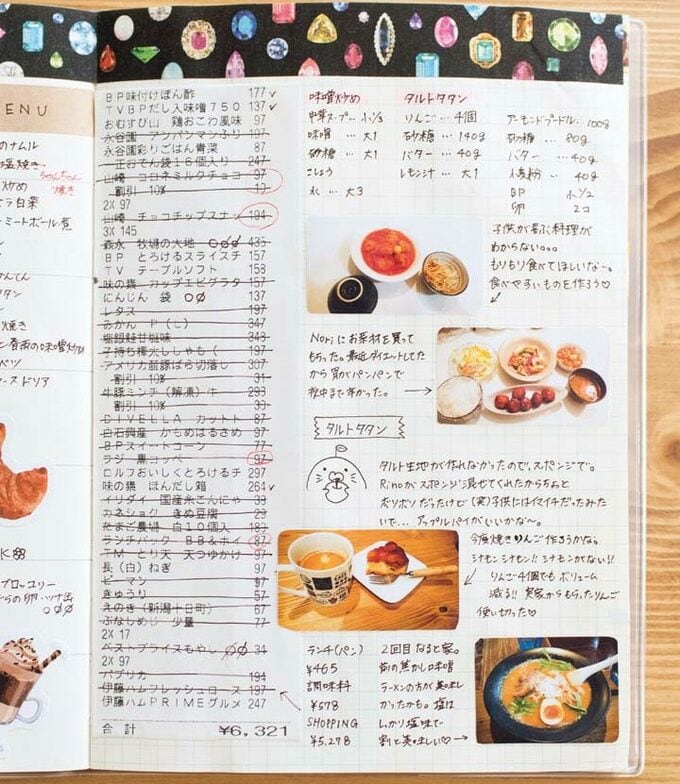 MENU
のナムル
塩焼き
焼き
炒め
ラ白菜
ミートボール煮
タン
焼き
春雨の味噌炒め
ベツ
ースドリア
ブロッコリー
らの卵・ツナ缶
BP味付けぽん酢 177
TVBPだし入味噌750 137
おむすび山 鶏おこわ風味 97
永谷園 アンパンマンふり 197
永谷園彩りごはん青菜 87
正おでん袋16個入り 247
山崎 コロネミルクチョコ 97
割引 10% 10
2X 97
山崎 チョコチップスナッ 194
3X 145
森永 牧場の大地 435
BP とろけるスライスチ 157
TV テーブルソフト 158
味の素 カップエビグラタ 157
にんじん 袋 137
レタス 197
みかん P(L) 347
塩銀鮭甘塩味 348
子持ち樺太ししゃも( 197
アメリカ産豚ばら切落し 307
割引 10% 31
牛豚ミンチ(解凍)牛 293
割引 10% 30
DIVELLA カットト 87
白石興産 かもめはるさめ 97
BPスイートコーン 77
ラジ 黒コッペ 97
ロルフおいしくとろけるチ 297
味の素 ほんだし箱 264
イリダイ 国産糸こんにゃ 39
カネショク きぬ豆腐 29
たまご農場 白10個入 182
ランチパック BB&ホイ 87
TM とり天 天つゆかけ 97
長(白)ねぎ 97
ピーマン 97
きゅうり 57
えのき(新潟十日町) 67
ぶなしめじ 少量 77
2X 17
ベストプライスもやし 34
2X 97
パプリカ 194
伊藤ハムフレッシュロース 197
伊藤ハムPRIMEグルメ 247
合計 ¥6,321
味噌炒め
中華スープ… 小1/2
味噌 … 大1
砂糖 … 大1
こしょう
水 … 大3
タルトタタン
りんご … 4個
砂糖 … 140g
バター … 40g
レモン汁 … 大1
アーモンドプードル… 100g
砂糖 … 80g
バター … 40g
小麦粉 … 40g
BP 小1/2
卵 2コ
子供が喜ぶ料理が
わからない。。。
もりもり食べてほしいな〜。
食べやすいものを作ろう♡
Noriにお惣菜を買って
もらった。最近ダイエットしてた
から胃がパンパンで
夜中まで辛かった。→
タルトタタン
タルト生地が作れなかったので、スポンジで。
Rinoがスポンジ混ぜてくれたからちょと
ボソボソだったけど(笑)子供にはイマイチだったみた
いで… アップルパイがいいかな〜。
今度焼きりんご作ろうかな。
シナモンシナモン!! シナモンがない!!
りんご4個でもボリューム
減る!! 実家からもらったりんご
使い切った♡
ランチ(パン)
¥465
調味料
¥578
SHOPPING
¥5,278
2回目なると家。
街の焦がし味噌
ラーメンの方が美味し
かったかも。塩は
しっかり塩味で
割と美味しい♡→